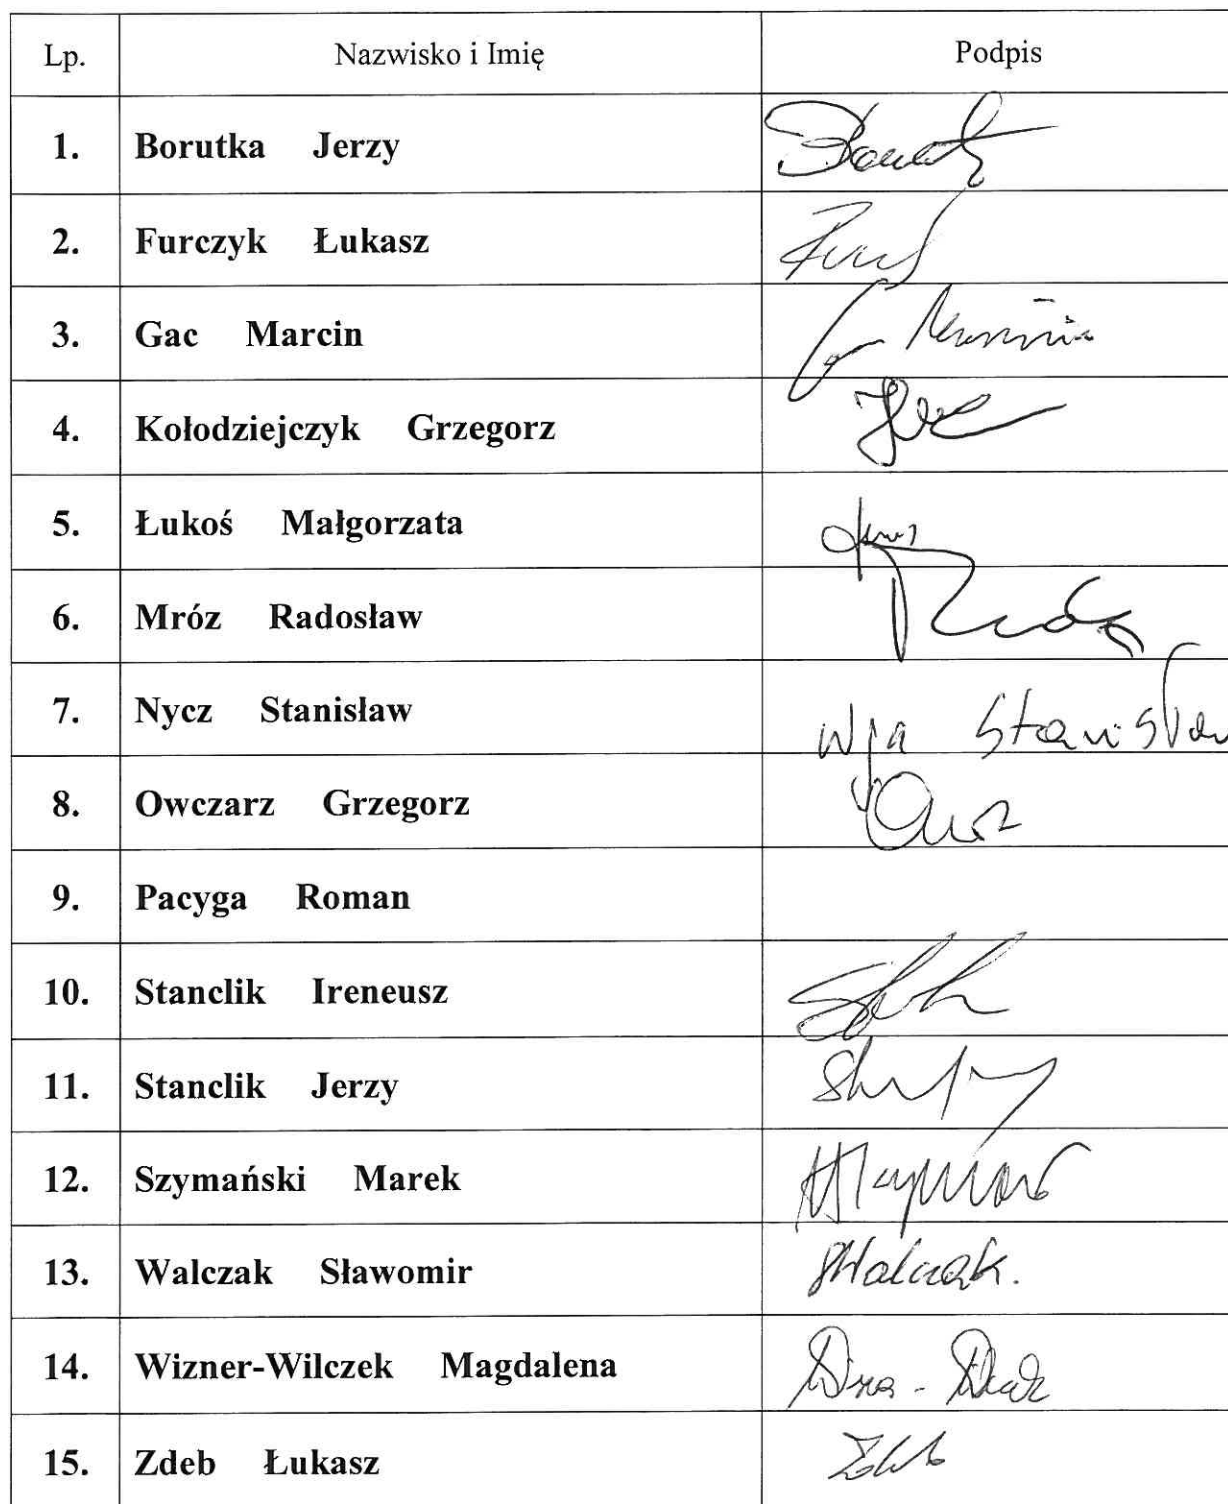 Lp. Nazwisko i Imię Podpis
1. Borutka Jerzy
2. Furczyk Łukasz
3. Gac Marcin
4. Kołodziejczyk Grzegorz
5. Łukoś Małgorzata
6. Mróz Radosław
7. Nycz Stanisław
8. Owczarz Grzegorz
9. Pacyga Roman
10. Stanclik Ireneusz
11. Stanclik Jerzy
12. Szymański Marek
13. Walczak Sławomir
14. Wizner-Wilczek Magdalena
15. Zdeb Łukasz